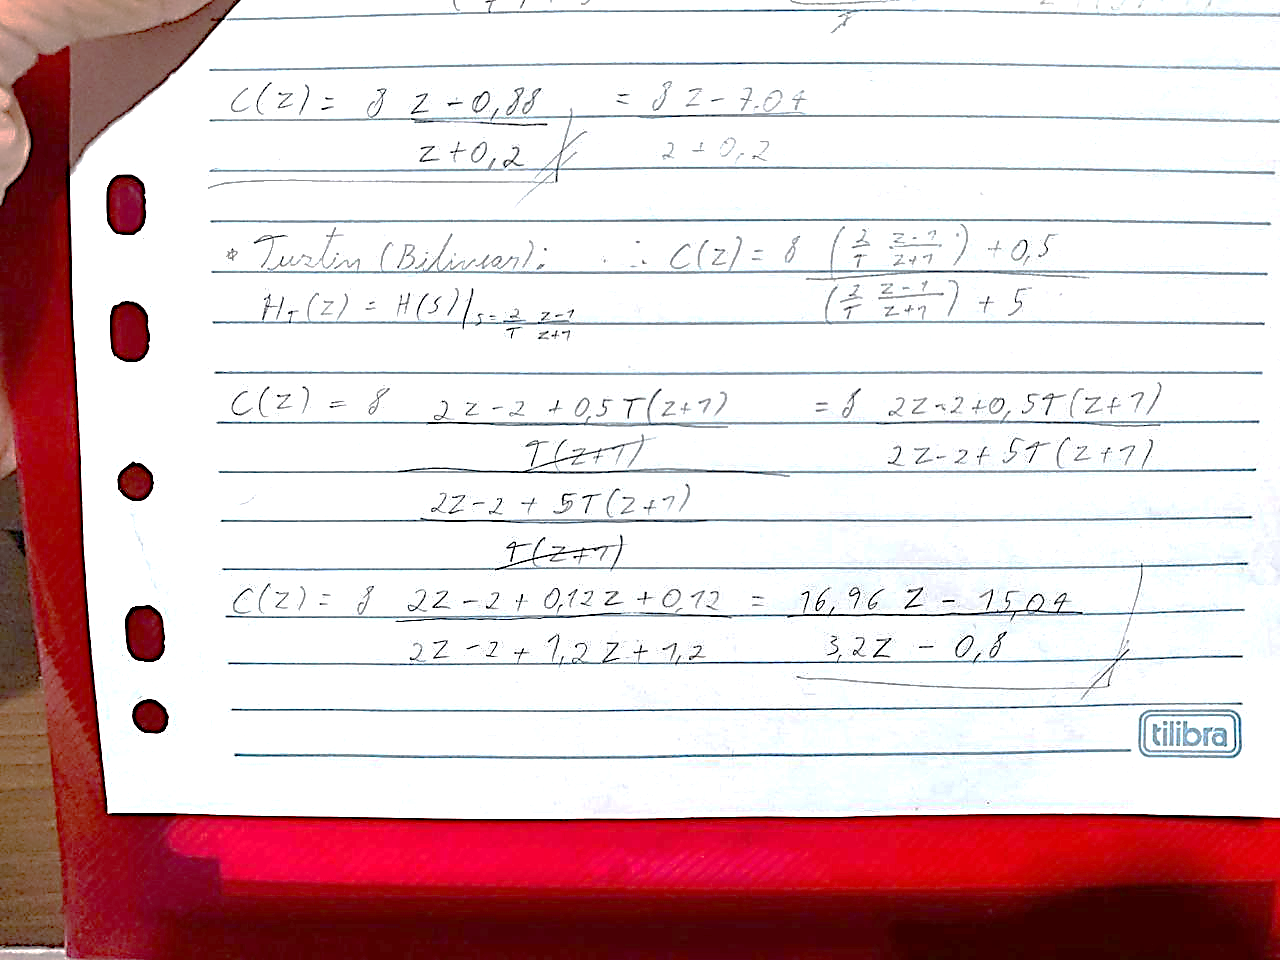 C(z) = 8 (z - 0,88)/(z + 0,2) = (8z - 7.04)/(z + 0,2)
* Tustin (Bilinear): ∴ C(z) = 8 ((2/T (z-1)/(z+1)) + 0,5)/((2/T (z-1)/(z+1)) + 5)
H_T(z) = H(s)|s= 2/T (z-1)/(z+1)
C(z) = 8 ((2z-2 + 0,5T(z+1))/(T(z+1)))/((2z-2 + 5T(z+1))/(T(z+1))) = 8 (2z-2+0,5T(z+1))/(2z-2+5T(z+1))
C(z) = 8 (2z-2+0,12z+0,12)/(2z-2+1,2z+1,2) = (16,96z - 15,04)/(3,2z - 0,8)
tilibra